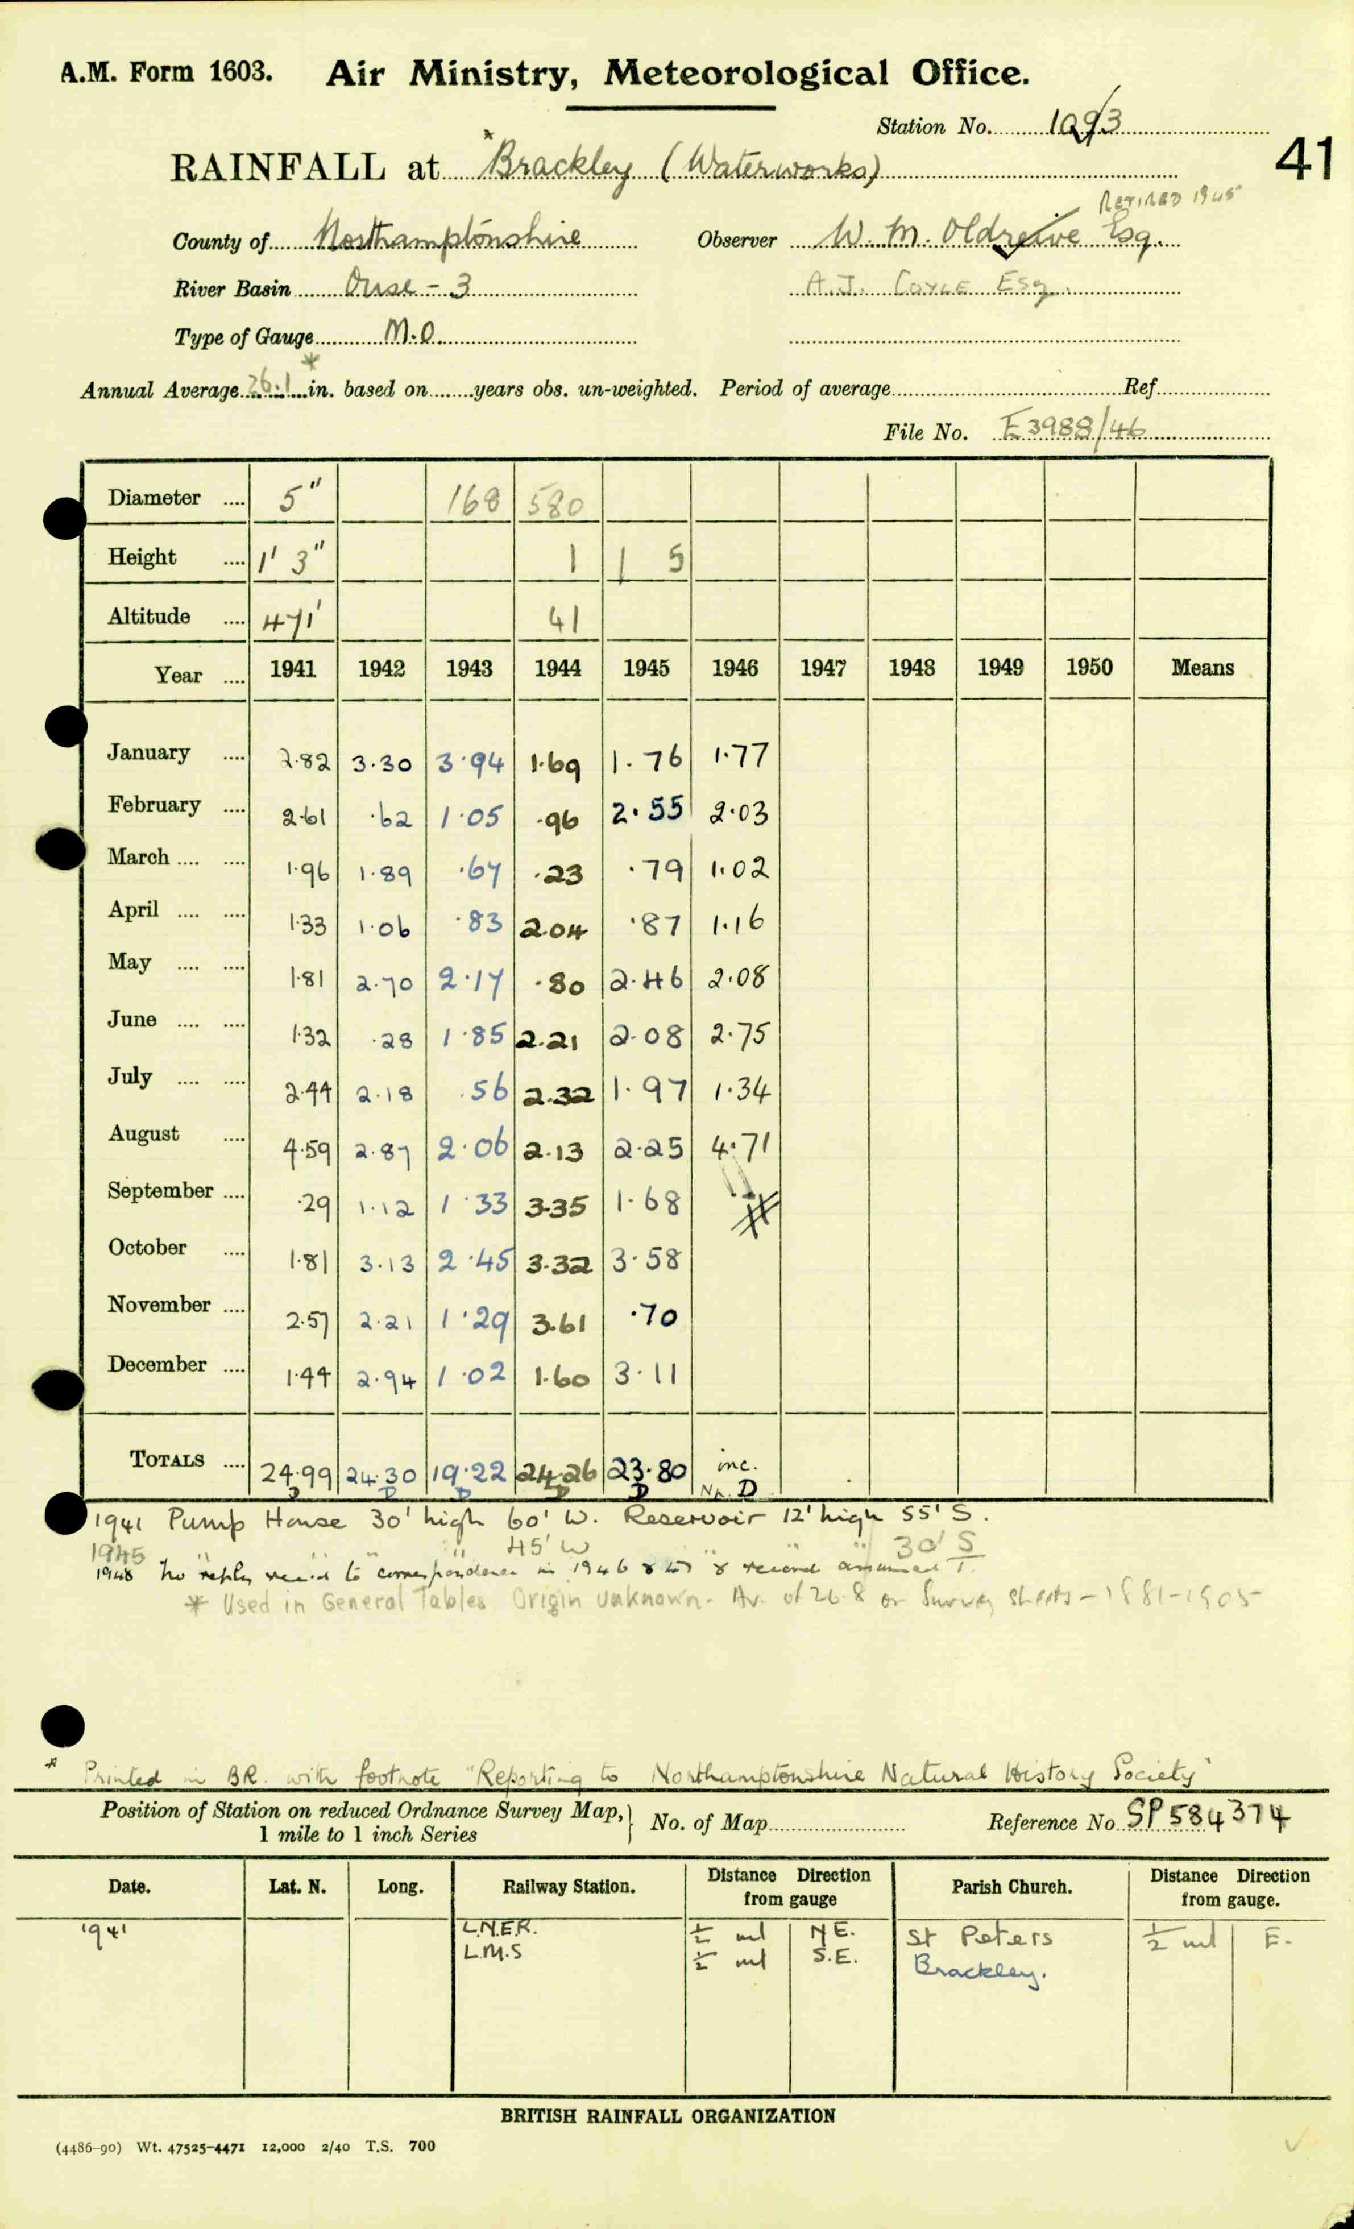 A.M. Form 1603. Air Ministry, Meteorological Office.
Station No. 1093
41
RAINFALL at *Brackley (Waterworks)
RETIRED 1945
County of Northamptonshire Observer W. M. Oldreive Esq.
River Basin Ouse - 3 A.J. COYLE ESQ.
Type of Gauge M.O.
Annual Average 26.1* in. based on years obs. un-weighted. Period of average Ref.
File No. E3988/46
Diameter .... 5" 168 580
Height .... 1' 3" 1 1 5
Altitude .... 471' 41
Year .... 1941 1942 1943 1944 1945 1946 1947 1948 1949 1950 Means
January .... 2.82 3.30 3.94 1.69 1.76 1.77
February .... 2.61 .62 1.05 .96 2.55 2.03
March .... .... 1.96 1.89 .67 .23 .79 1.02
April .... .... 1.33 1.06 .83 2.04 .87 1.16
May .... .... 1.81 2.70 2.17 .80 2.46 2.08
June .... .... 1.32 .28 1.85 2.21 2.08 2.75
July .... .... 2.44 2.18 .56 2.32 1.97 1.34
August .... 4.59 2.87 2.06 2.13 2.25 4.71
September .... .29 1.12 1.33 3.35 1.68
October .... 1.81 3.13 2.45 3.32 3.58
November .... 2.57 2.21 1.29 3.61 .70
December .... 1.44 2.94 1.02 1.60 3.11
TOTALS .... 24.99 24.30 19.22 24.26 23.80 inc.
D D D D D D
1941 Pump House 30' high 60' W. Reservoir 12' high 55' S.
1945 " " " 45' W " " " 30' S
1948 No reply rec'd to correspondence in 1946 & 47 & record assumed T.
* Used in General Tables Origin unknown. Av. of 26.8 on Survey sheets - 1881-1905
* Printed in BR. with footnote "Reporting to Northamptonshire Natural History Society"
Position of Station on reduced Ordnance Survey Map, 1 mile to 1 inch Series No. of Map Reference No. SP 584374
Date. Lat. N. Long. Railway Station. Distance Direction from gauge Parish Church. Distance Direction from gauge.
1941 L.N.E.R. ½ ml N E. St Peters ½ ml E.
L.M.S ½ ml S.E. Brackley.
BRITISH RAINFALL ORGANIZATION
(4486-90) Wt. 47525-4471 12,000 2/40 T.S. 700